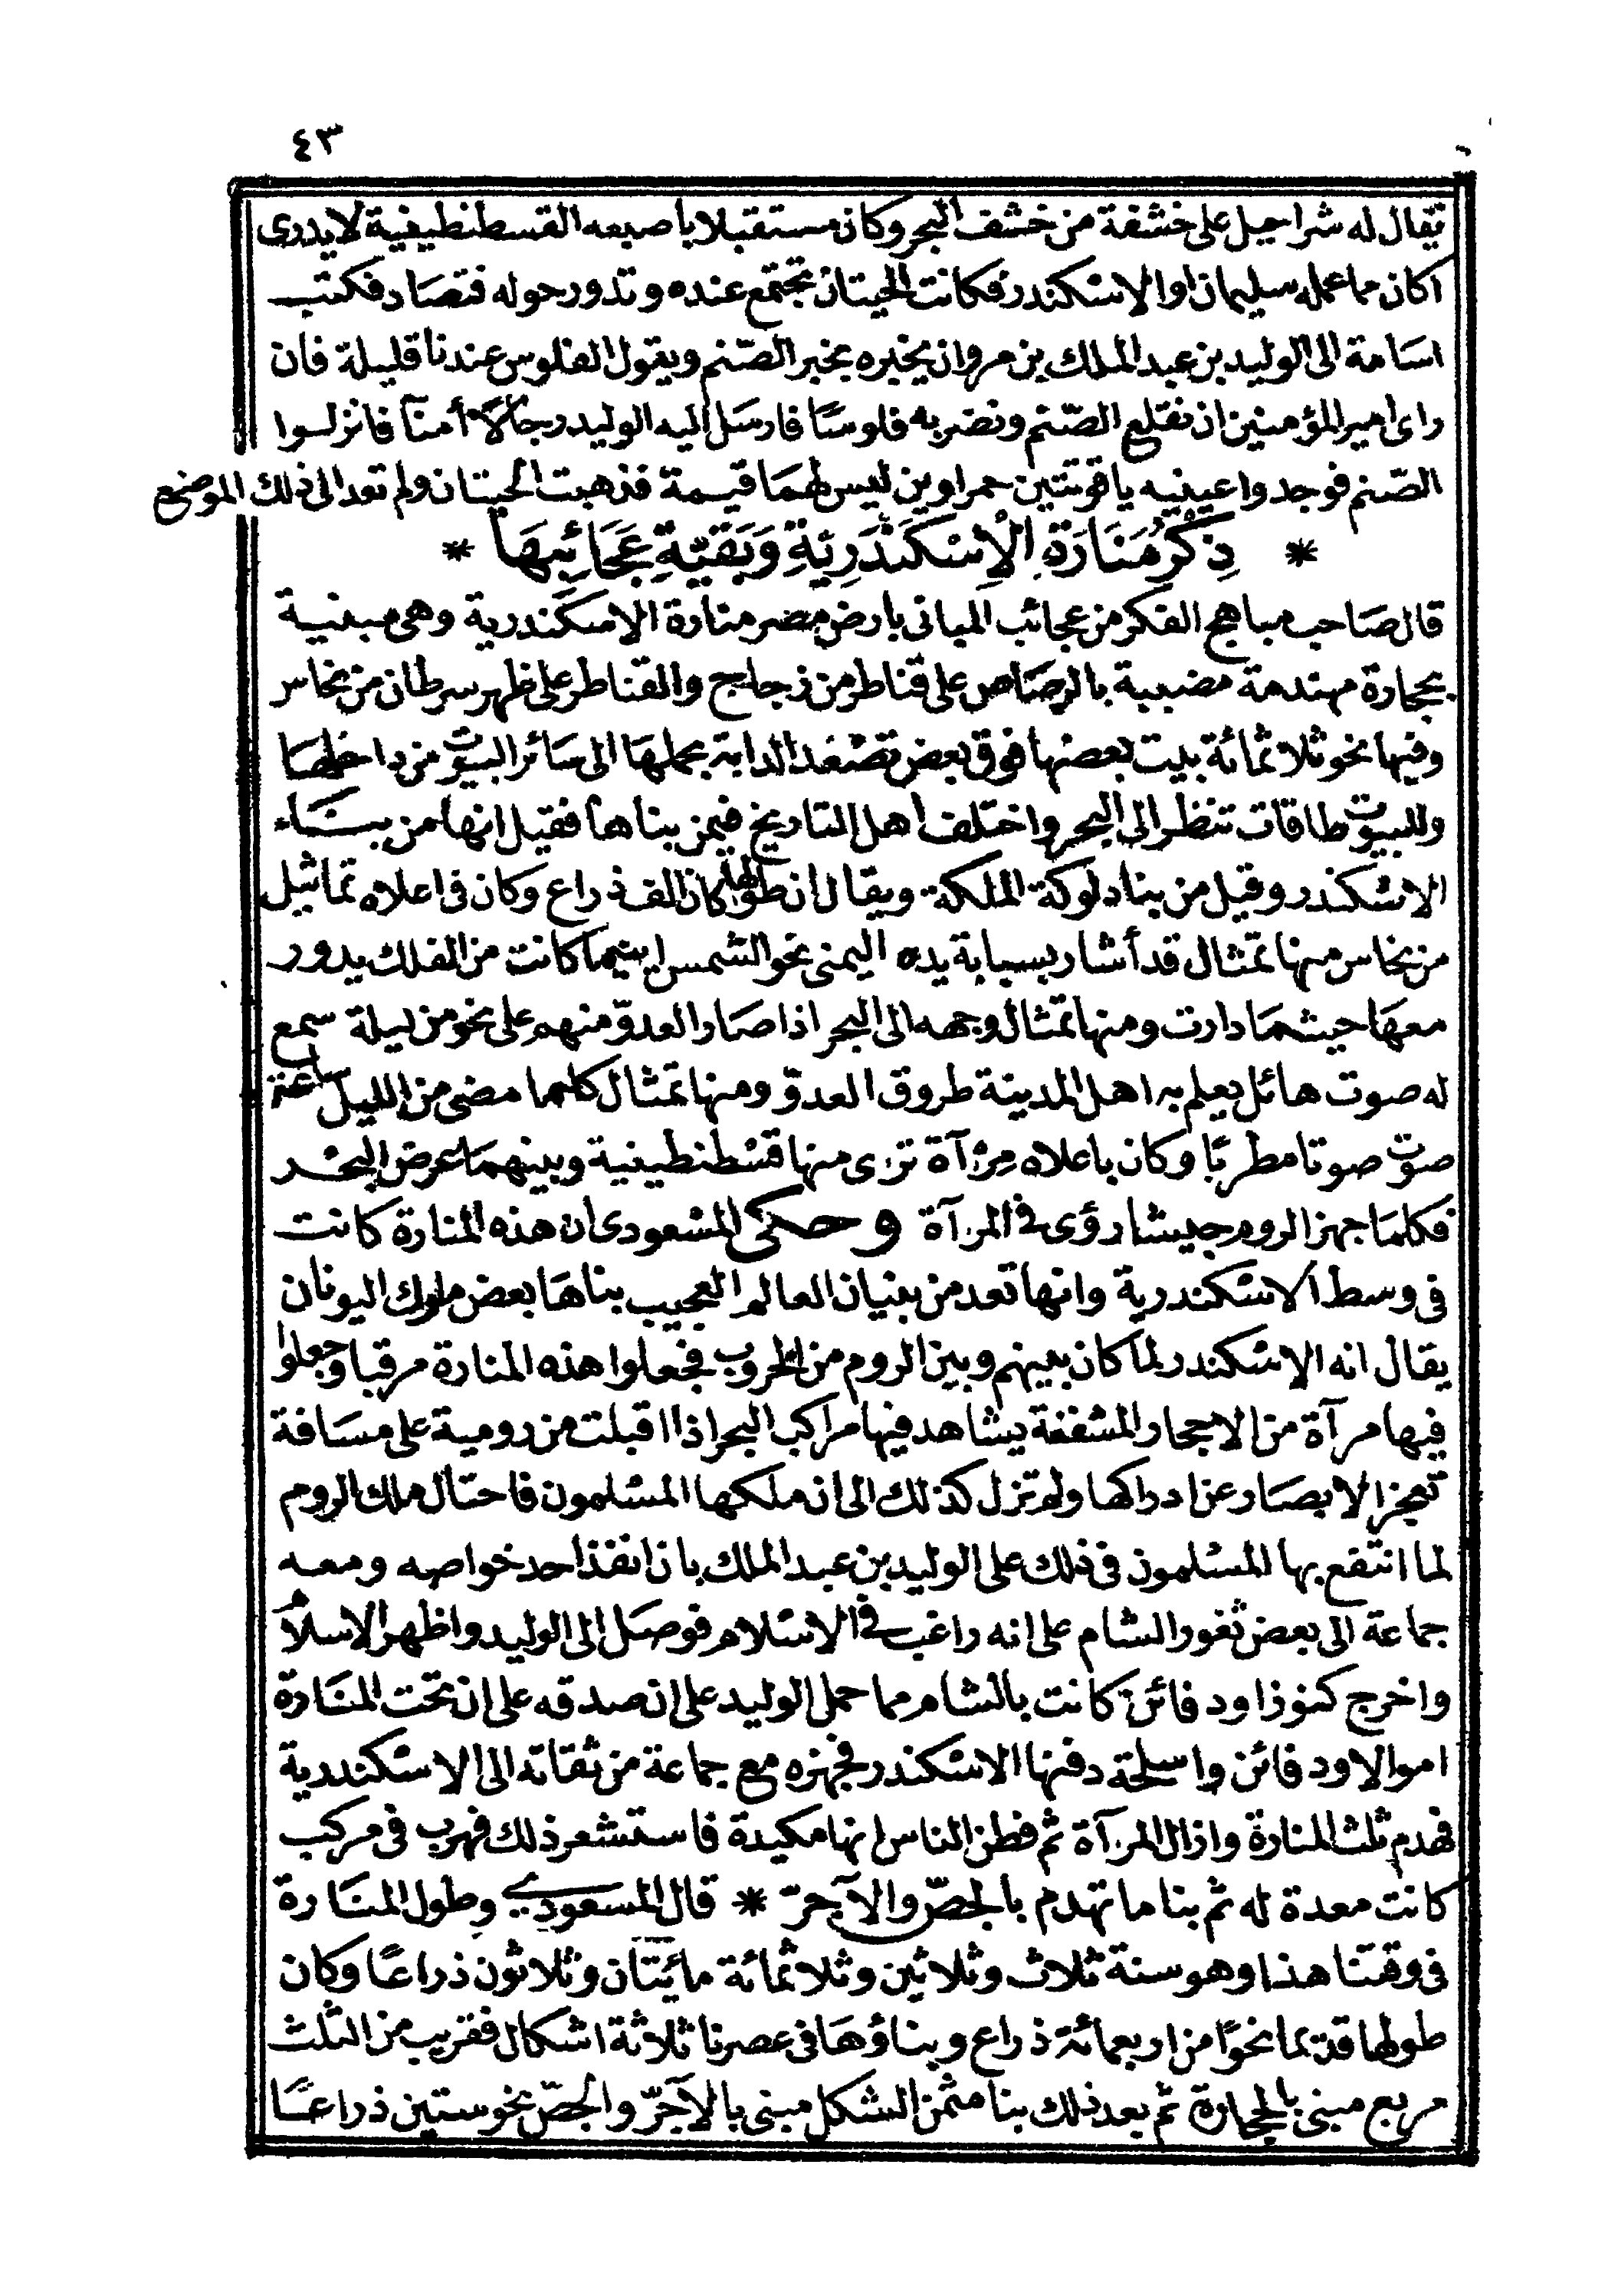 ٤٣
يقال له شراحيل على خشفة من خشف البحر وكان مستقبلا بأصبعه القسطنطينية لا يدرى
اكان مما عمله سليمان او الاسكندر فكانت الحيتان تجتمع عنده وتدور حوله فتصاد فكتب
اسامة الى الوليد بن عبد الملك بن مروان يخبره بخبر الصّنم ويقول الفلوس عندنا قليلة فان
راى امير المؤمنين ان نقلع الصّنم ونضربه فلوسًا فارسل اليه الوليد رجالًا أمنآ فانزلوا
الصّنم فوجدوا عينيه ياقوتتين حمراوين ليس لهما قيمة فذهبت الحيتان ولم تعد الى ذلك الموضع
* ذِكْرُ مَنَارَةِ الْإِسْكَنْدَرِيَّةِ وَبَقِيَّةِ عَجَائِبِهَا *
قال صاحب مباهج الفكر من عجائب المبانى بارض مصر منارة الاسكندرية وهى مبنية
بحجارة مهندمة مضببة بالرصاص على قناطر من زجاج والقناطر على ظهر سرطان من نحاس
وفيها نحو ثلاثمائة بيت بعضها فوق بعض تصعد الدابة بحملها الى سائر البيوت من داخلها
وللبيوت طاقات تنظر الى البحر واختلف اهل التاريخ فيمن بناها فقيل انها من بناء
الاسكندر وقيل من بنا دلوكة الملكة ويقال ان طولها كان الف ذراع وكان فى اعلاه تماثيل
من نحاس منها تمثال قد أشار بسبابة يده اليمنى نحو الشمس اينما كانت من الفلك يدور
معها حيثما دارت ومنها تمثال وجهه الى البحر اذا صار العدوّ منهم على نحو من ليلة سمع
له صوت هائل يعلم به اهل المدينة طروق العدوّ ومنها تمثال كلما مضى من الليل ساعة
صوّت صوتا مطربًا وكان باعلاه مِرْآة ترى منها قسطنطينية وبينهما عرض البحر
فكلما جهز الروم جيشا رؤى فى المرآة وحكى المسعودى ان هذه المنارة كانت
فى وسط الاسكندرية وانها تعد من بنيان العالم العجيب بناها بعض ملوك اليونان
يقال انه الاسكندر لما كان بينهم وبين الروم من الحروب فجعلوا هذه المنارة مرقبا وجعلوا
فيها مرآة من الاحجار المشففة يشاهد فيها مراكب البحر اذا اقبلت من رومية على مسافة
تعجز الابصار عن ادراكها ولم تزل كذلك الى ان ملكها المسلمون فاحتال ملك الروم
لما انتفع بها المسلمون فى ذلك على الوليد بن عبد الملك بان انفذ احد خواصه ومعه
جماعة الى بعض ثغور الشام على انه راغب فى الاسلام فوصل الى الوليد واظهر الاسلام
واخرج كنوزا ودفائن كانت بالشام مما حمل الوليد على ان صدقه على ان تحت المنارة
اموالا ودفائن واسلحة دفنها الاسكندر فجهزه مع جماعة من ثقاته الى الاسكندرية
فهدم ثلث المنارة وازال المرآة ثم فطن الناس انها مكيدة فاستشعر ذلك فهرب فى مركب
كانت معدة له ثم بنا ما تهدم بالجصّ والآجرّ * قال المسعودى وطول المنارة
فى وقتنا هذا وهو سنة ثلاث وثلاثين وثلاثمائة مائيتان وثلاثون ذراعًا وكان
طولها قديما نحوًا من اربعمائة ذراع وبناؤها فى عصرنا ثلاثة اشكال فقريب من الثلث
مربع مبنى بالحجارة ثم بعد ذلك بنا مثمن الشكل مبنى بالآجرّ والجصّ نحو ستين ذراعًا